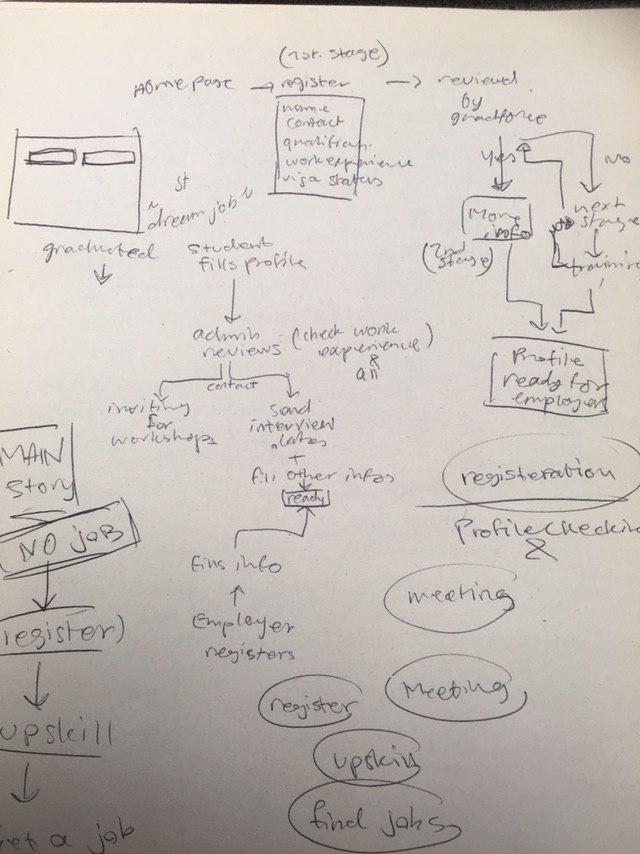 (1st. stage)
Homepage → register → reviewed
by
gradforce
name
contact
qualification.
work experience
visa status
Yes
NO
More
info
(2nd
stage)
next
stage
training
Profile
ready for
employers
st
~ dream job ~
graduated
student
fills profile
admin
reviews
(check work
experience)
&
all
contact
inviting
for
workshops
send
interview
dates
+
fill other infos
ready
Fills info
Employer
registers
MAIN
Story
NO job
register)
upskill
get a job
registeration
Profile checking
&
meeting
Meeting
register
upskill
find jobs